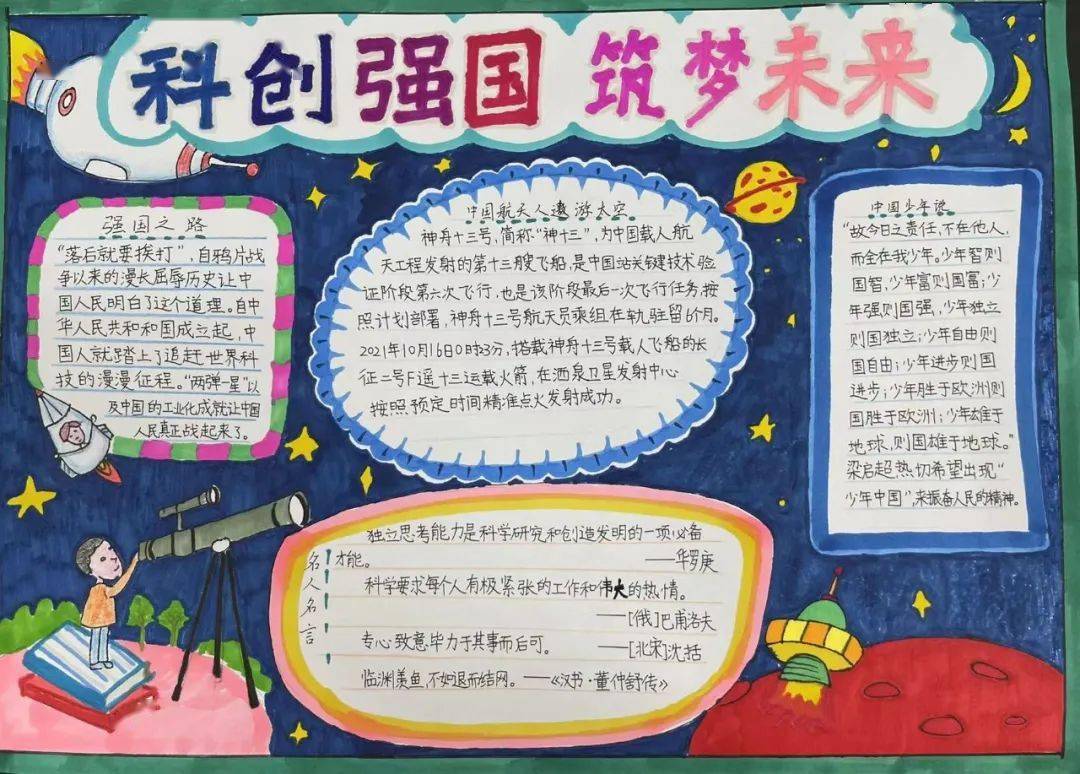 科创强国 筑梦未来
强国之路
“落后就要挨打”，自鸦片战
争以来的漫长屈辱历史让中
国人民明白了这个道理。自中
华人民共和和国成立起，中
国人就踏上了追赶世界科
技的漫漫征程。“两弹一星”以
及中国的工业化成就让中国
人民真正战起来了。
中国航天人遨游太空
神舟十三号，简称“神十三”，为中国载人航
天工程发射的第十三艘飞船，是中国站关键技术验
证阶段第六次飞行，也是该阶段最后一次飞行任务，按
照计划部署，神舟十三号航天员乘组在轨驻留6个月。
2021年10月16日0时23分，搭载神舟十三号载人飞船的长
征二号F遥十三运载火箭，在酒泉卫星发射中心
按照预定时间精准点火发射成功。
中国少年说
“故今日之责任，不在他人，
而全在我少年。少年智则
国智，少年富则国富；少
年强则国强，少年独立
则国独立；少年自由则
国自由；少年进步则国
进步；少年胜于欧洲则
国胜于欧洲；少年雄于
地球，则国雄于地球。”
梁启超热切希望出现“
少年中国”，来振奋人民的精神。
名人名言
独立思考能力是科学研究和创造发明的一项必备
才能。 ——华罗庚
科学要求每个人有极紧张的工作和伟大的热情。
——[俄]巴甫洛夫
专心致意毕力于其事而后可。 ——[北宋]沈括
临渊羡鱼，不如退而结网。——《汉书·董仲舒传》